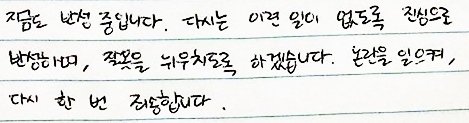 지금도 반성 중입니다. 다시는 이런 일이 없도록 진심으로
반성하며, 잘못을 뉘우치도록 하겠습니다. 논란을 일으켜,
다시 한 번 죄송합니다.